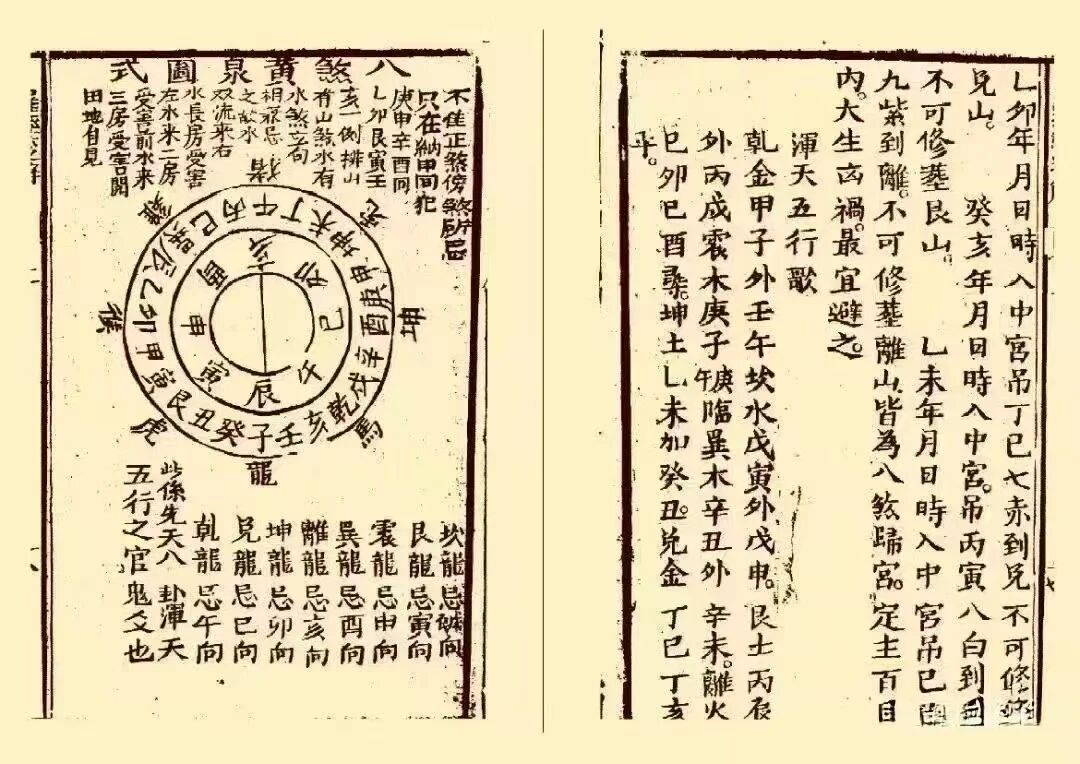 乚卯年月日時入中宮吊丁巳七赤到兑不可修
兑山。　癸亥年月日時入中宮。吊丙寅八白到
不可修塟艮山。　乚未年月日時入中宮吊已
九紫到離。不可修塟離山皆為八煞歸宮。定主百日
内。大生凶禍。最宜避之。
渾天五行歌
乾金甲子外壬午坎水戊寅外戊申。艮土丙辰
外丙戌震木庚子庚午臨巽木辛丑外辛未。離火
已卯已酉尋。坤土乚未加癸丑。兑金丁巳丁亥
平。
八煞黄泉圖式
不隹正煞傍煞所忌
只在納甲同犯
庚申辛酉向
乚卯艮寅壬
亥一例排山
有山煞水有
水煞
忌
之
双流来右
水長房受害
左水来二房
受害前水来
三房受害閞
田地自見
猪
兔
坤
馬
龍
虎
猴
雞
午丁未坤申庚酉辛戌乾亥壬子癸丑艮寅甲卯乙辰巽巳丙
亥卯巳午辰寅申酉
坎龍忌向
艮龍忌寅向
震龍忌申向
巽龍忌酉向
離龍忌亥向
坤龍忌卯向
兑龍忌巳向
乾龍忌午向
此係先天八卦渾天
五行之官鬼爻也